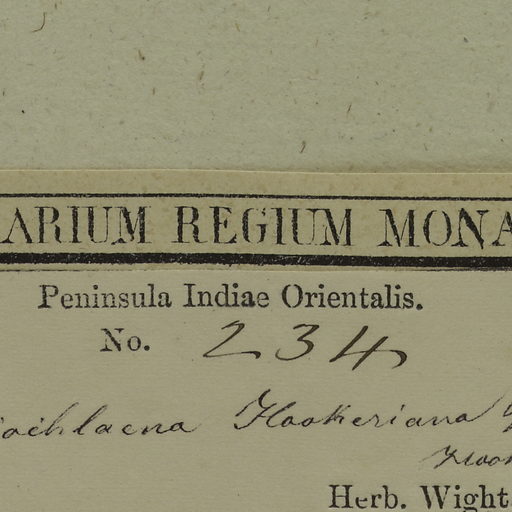 ARIUM REGIUM MONA
Peninsula Indiae Orientalis.
No. 234
ochlaena Hookeriana
Hook
Herb. Wight